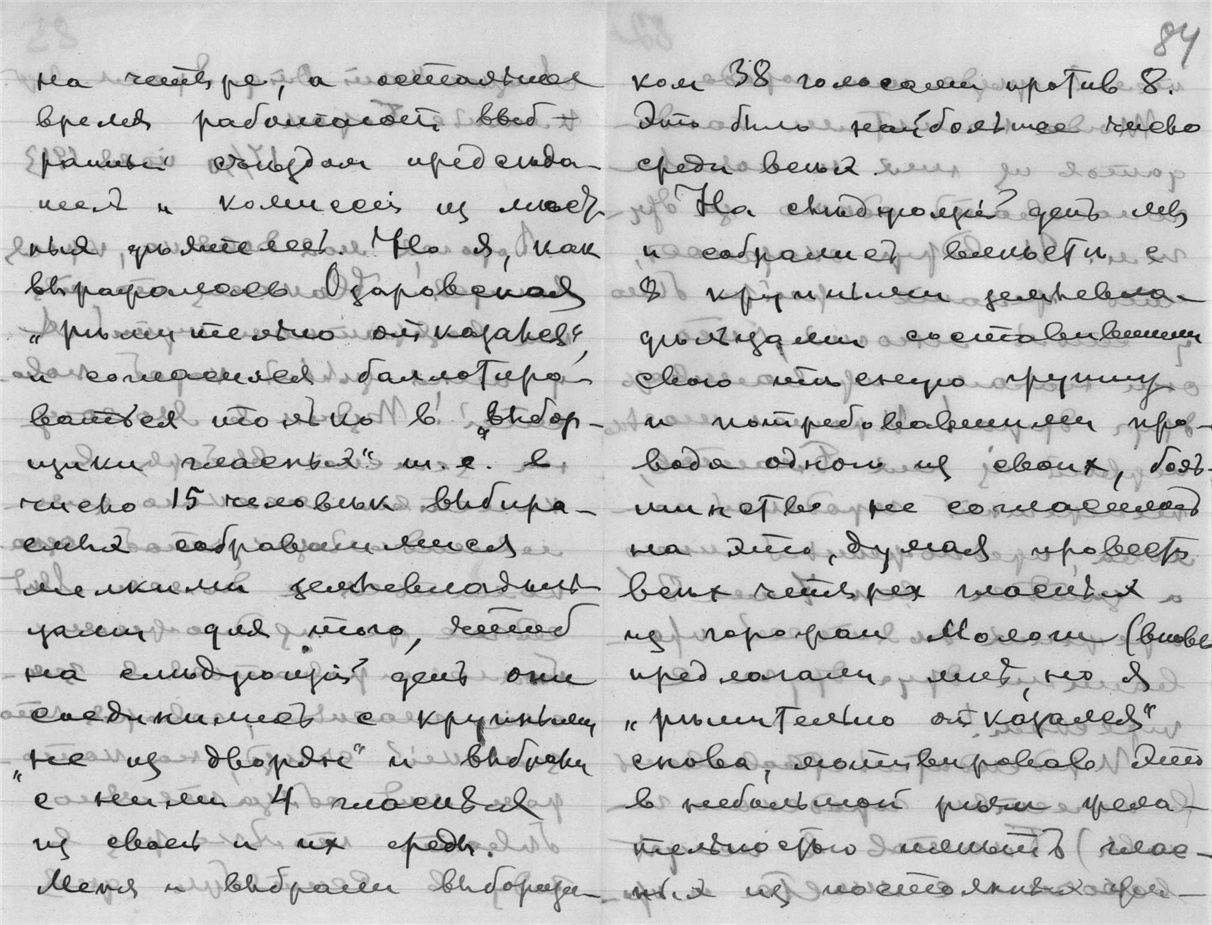 на четыре, а остальное
время работают выб-
ранные съездом председа-
тель и комиссия из мест-
ных деятелей. Но я, как
выражалась Озаровская
„рѣшительно отказался“,
и согласился баллотиро-
ваться только в „выбор-
щики гласных“ т.е. в
число 15 человѣк выбира-
емых собравшимися
мелкими землевладѣль-
цами для того, чтоб
на слѣдующій день они
соединились с крупными
„не из дворян“ и выбрали
с ними 4 гласных
из своей и их среды.
Меня и выбрали выборщи-
84
ком 38 голосами против 8.
Это было наибольшее число
среди всѣх.
На слѣдующій день мы
и собрались вмѣстѣ с
8 крупными землевла-
дѣльцами составившими
свою тѣсную группу
и потребовавшими про-
вода одного из своих, боль-
шинство не согласилось
на это, думая провести
всѣх четырех гласных
из горожан Мологи (вновь
предлагали мнѣ, но я
„рѣшительно отказался“
снова, мотивировав это
в небольшой рѣчи жела-
тельностью имѣть) глас-
ных из постоянных жи-